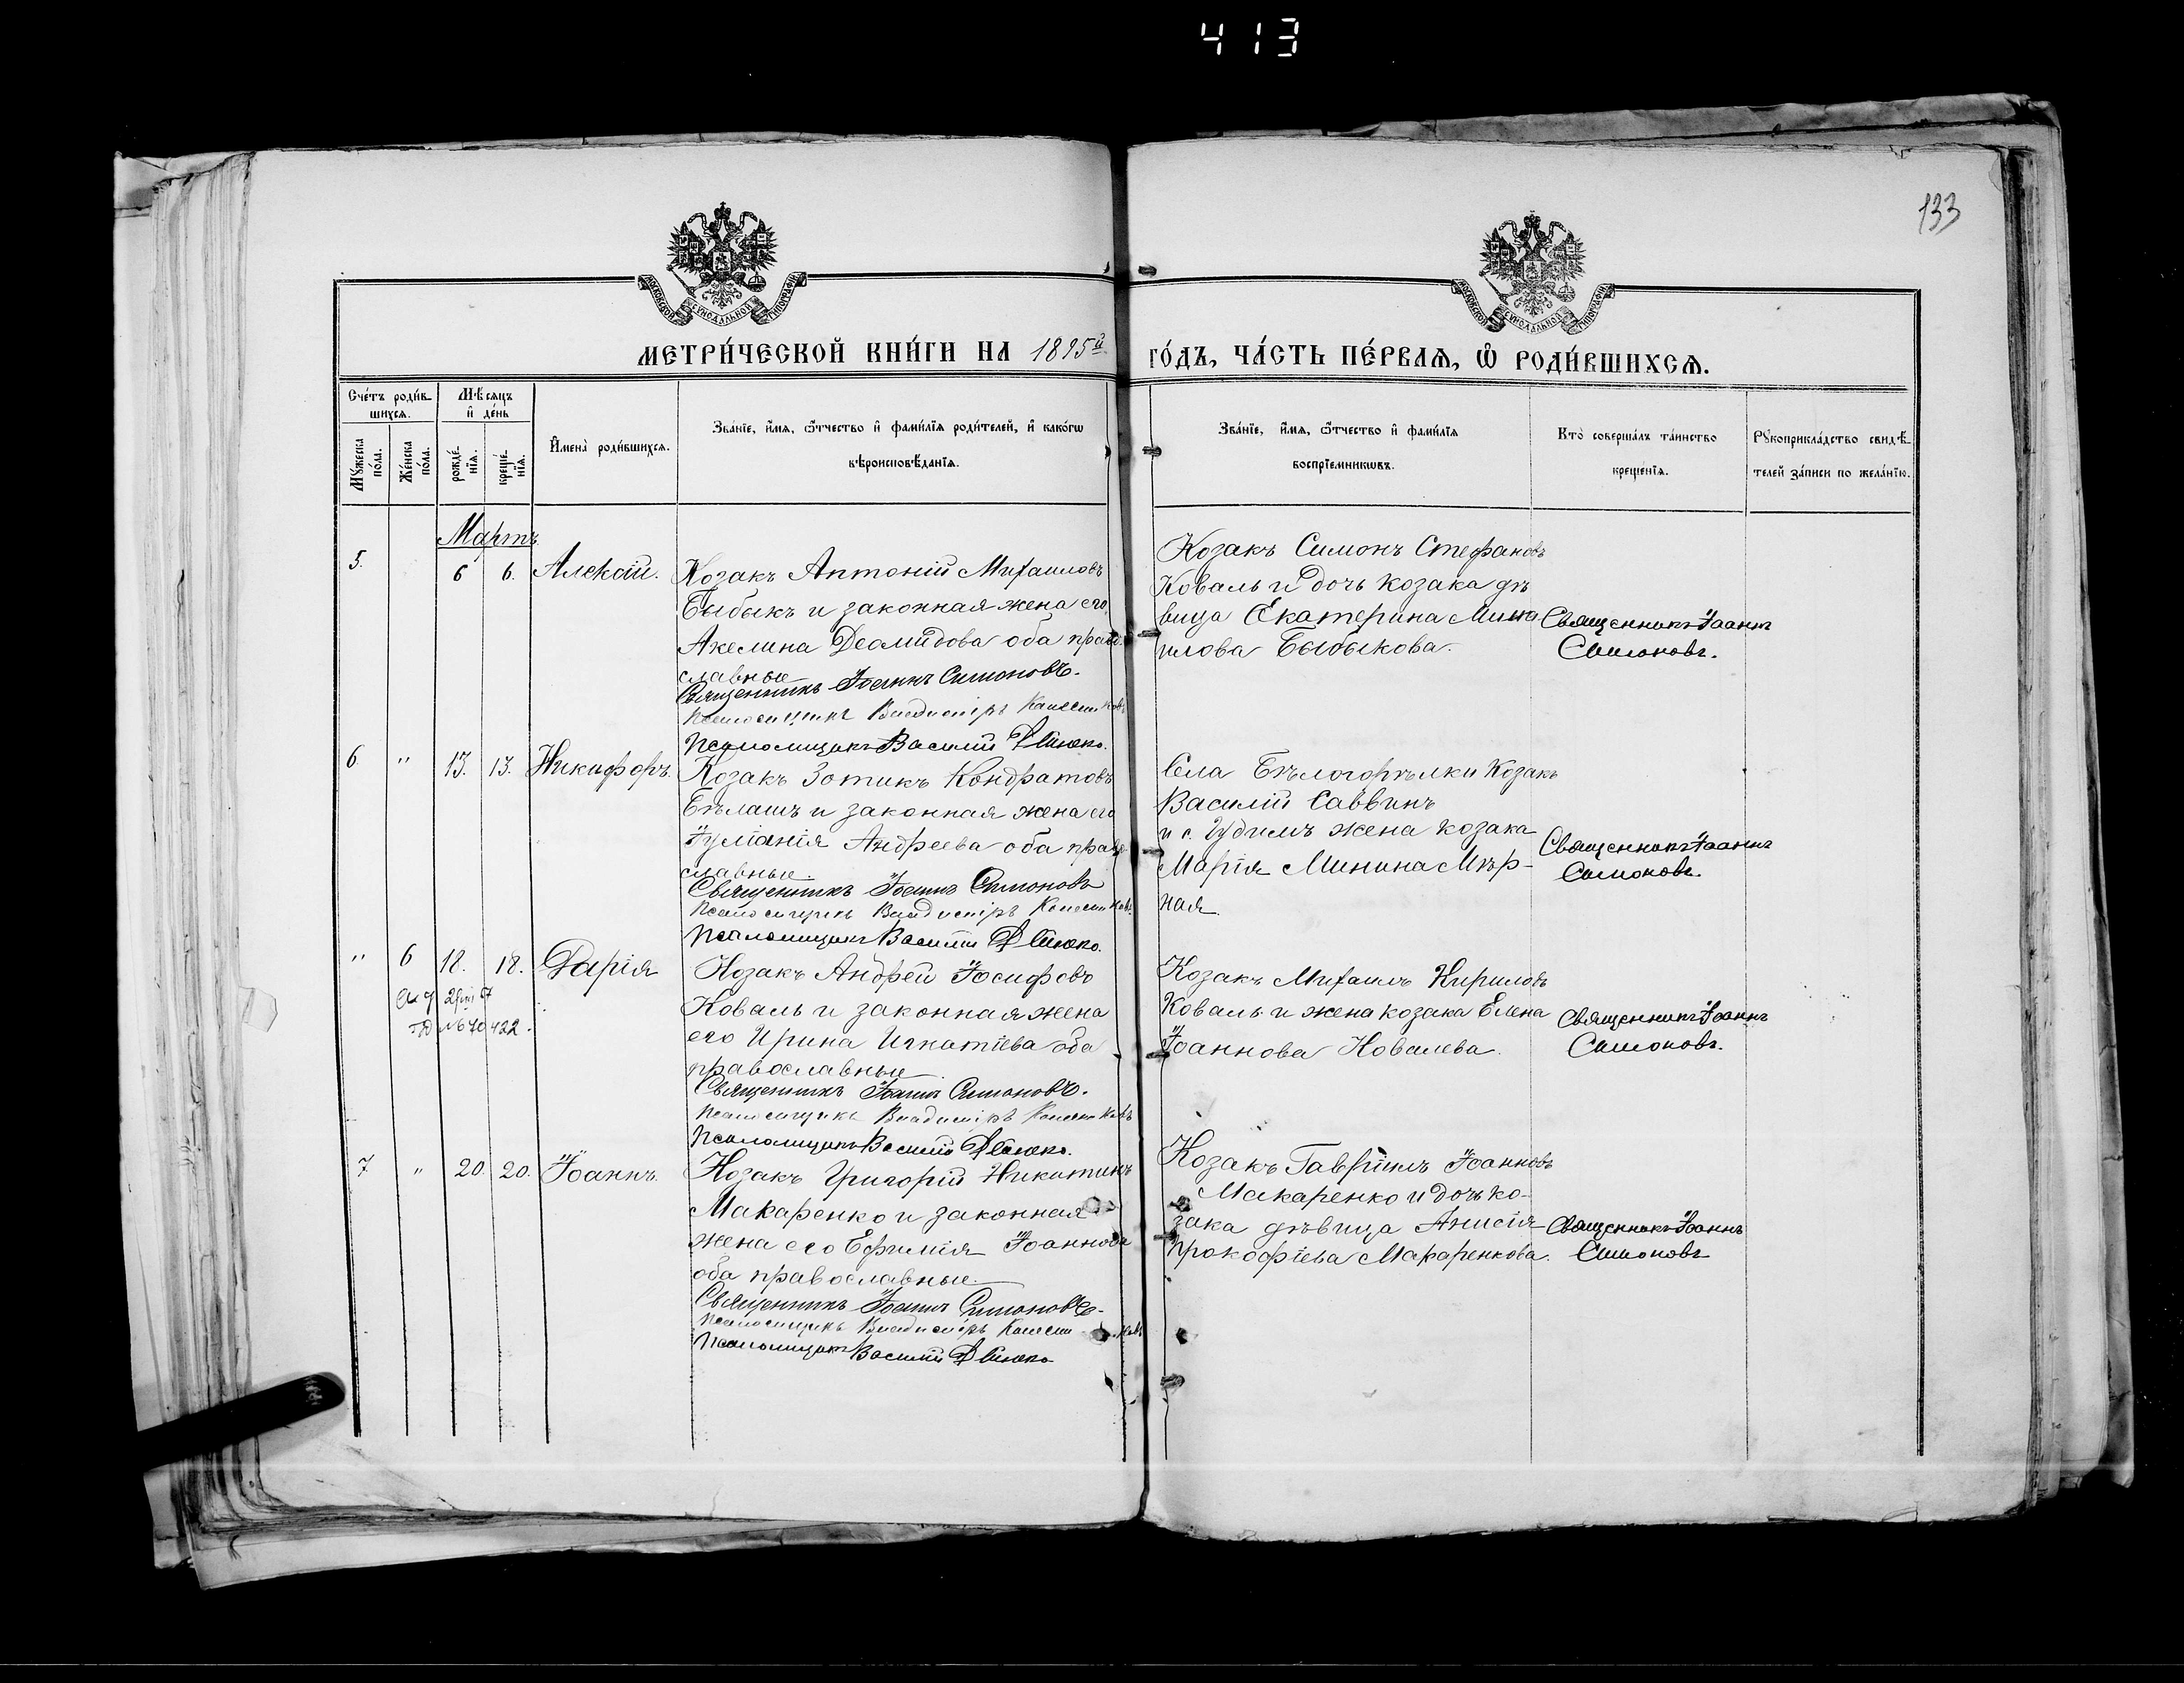 413
133
МОСКОВСКОЙ СѴНОДАЛЬНОЙ ТИПОГРАФІИ
МОСКОВСКОЙ СѴНОДАЛЬНОЙ ТИПОГРАФІИ
МЕТРИ́ЧЕСКОЙ КНИ́ГИ НА 1895й ГО́ДЪ, ЧА́СТЬ ПЕ́РВАѦ, Ѽ РОДИ́ВШИХСѦ.
Сче́тъ роди́вшихсѧ.
Мѣ́сѧцъ и҆ де́нь
Мꙋ́жеска по́ла.
Же́нска по́ла.
рожде́нїѧ.
креще́нїѧ.
И҆мена̀ роди́вшихсѧ.
Зва́нїе, и҆́мѧ, ѻ҆́тчество и҆ фами́лїѧ роди́телей, и҆ како́гѡ
вѣроисповѣ́данїѧ.
Зва́нїе, и҆́мѧ, ѻ҆́тчество и҆ фами́лїѧ
воспрїе́мникѡвъ.
Кто̀ соверша́лъ та́инство
креще́нїѧ.
Рꙋкоприкла́дство свидѣ́-
телей за́писи по жела́нїю.
Мартъ
5. 6 6. Алексій.
Козакъ Антоній Михаиловъ
Быбыкъ и законная жена его
Акелина Деомидова оба право-
славные
Священникъ Іоаннъ Симоновъ.
Псаломщикъ Владиміръ
Псаломщикъ Василій
Козакъ Симонъ Стефановъ
Коваль и дочь козака дѣ
вица Екатерина Миха
илова Быбыкова.
Священникъ Іоаннъ
Симоновъ.
6 " 13. 13. Никифоръ.
Козакъ Зотикъ Кондратовъ
Бѣлашъ и законная жена его
Іуліанія Андреева оба право-
славные.
Священникъ Іоаннъ Симоновъ
Псаломщикъ Владиміръ
Псаломщикъ Василій
Села Бѣлогорѣлки Козакъ
Василій Саввинъ
и с. Гудимъ жена козака
Марія Минина Мѣр-
ная.
Священникъ Іоаннъ
Симоновъ.
" 6 18. 18. Дарія
№ 670422.
Козакъ Андрей Іосифовъ
Коваль и законная жена
его Ирина Игнатіева оба
православные
Священникъ Іоаннъ Симоновъ.
Псаломщикъ Владиміръ
Псаломщикъ Василій
Козакъ Михаилъ Кириловъ
Коваль и жена козака Елена
Іоаннова Ковалева.
Священникъ Іоаннъ
Симоновъ.
7 " 20. 20. Іоаннъ.
Козакъ Григорій Никитинъ
Макаренко и законная
жена его Ефимія Іоаннова
оба православные.
Священникъ Іоаннъ Симоновъ.
Псаломщикъ Владиміръ
Псаломщикъ Василій
Козакъ Гавріилъ Іоанновъ
Макаренко и дочь ко-
зака дѣвица Анисія
Прокофіева Макаренкова.
Священникъ Іоаннъ
Симоновъ